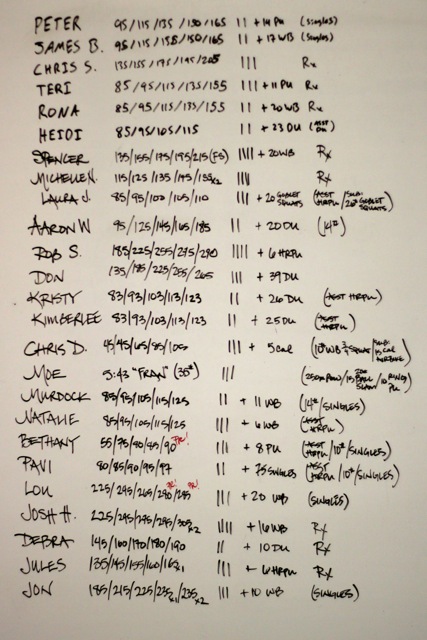 PETER 95/115/135/150/165 II + 14 PU (SINGLES)
JAMES B. 95/115/155/150/165 II + 17 WB (SINGLES)
CHRIS S. 135/155/175/195/205 III Rx
TERI 85/95/115/135/155 III + 11 PU Rx
RONA 85/95/115/135/155 II + 20 WB Rx
HEIDI 85/95/105/115 II + 23 DU
SPENCER 135/155/175/195/215 (FS) IIII + 20 WB Rx
MICHELLE N. 115/125/135/145/155 x2 IIII Rx
LAURA J. 85/95/100/105/110 III + 20 GOBLET SQUATS
AARON W 95/125/145/165/185 II + 20 DU (14#)
ROB S. 185/225/255/275/290 IIII + 6 HRPU
DON 135/185/225/255/265 III + 39 DU
KRISTY 83/93/103/113/123 II + 26 DU (ASST HRPU)
KIMBERLEE 83/93/103/113/123 II + 25 DU (ASST HRPU)
CHRIS D. 45/45/65/85/105 III + 5 CAL
MOE 5:43 "FRAN" (35#) III
MURDOCK 85/95/105/115/125 II + 11 WB (14#/SINGLES)
NATALIE 85/95/105/115/125 III + 6 WB (ASST HRPU)
BETHANY 55/75/80/85/90 PR! III + 8 PU (ASST HRPU/10#/SINGLES)
PAVI 80/85/90/95/97 II + 75 SINGLES (ASST HRPU/10#/SINGLES)
LOU 225/245/265/280/295 PR! III + 20 WB (SINGLES)
JOSH H. 225/245/275/295/305 x2 IIII + 16 WB Rx
DEBRA 145/160/170/180/190 II + 10 DU Rx
JULES 135/145/155/160/165 x1 III + 6 HRPU Rx
JON 185/215/225/235 x1/235 x2 III + 10 WB (SINGLES)